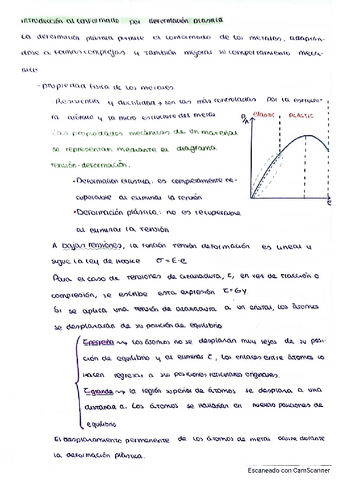 Introducción al conformado por deformación plástica
La deformación plástica permite el conformado de los metales, adaptán-
dose a formas complejas y también mejorar el comportamiento mecá-
nico
- propiedad física de los metales
· Resistencia y ductilidad → son las más controladas por la estructu-
ra atómica y la micro estructura del metal
Las propiedades mecánicas de un material
se representan mediante el diagrama
tensión-deformación.
ELASTIC PLASTIC
· Deformación elástica: es completamente re-
cuperable al eliminar la tensión
· Deformación plástica: no es recuperable
al eliminar la tensión
A bajas tensiones, la función tensión deformación es lineal y
sigue la ley de Hooke σ = E·e
Para el caso de tensiones de cizalladura, τ, en vez de tracción o
compresión, se escribe esta expresión τ = Gγ
Si se aplica una tensión de cizalladura a un cristal, los átomos
se desplazarán de su posición de equilibrio
τ pequeña → los átomos no se desplazan muy lejos de su posi-
ción de equilibrio y al eliminar τ, los enlaces entre átomos lo
hacen regresar a sus posiciones reticulares originales.
τ grande → la región superior de átomos se desplaza a una
distancia a. Los átomos se hallarían en nuevas posiciones de
equilibrio
El desplazamiento permanente de los átomos de metal ocurre durante
la deformación plástica.
Escaneado con CamScanner